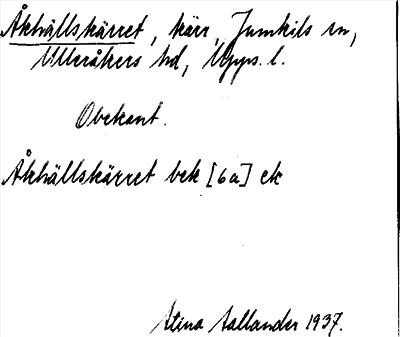 Åkhällskärret, kärr, Jumkils sn,
Ulleråkers hd, Upps. l.
Obekant.
Åkhällskärret bek [6a] ek
Stina Sallander 1937.